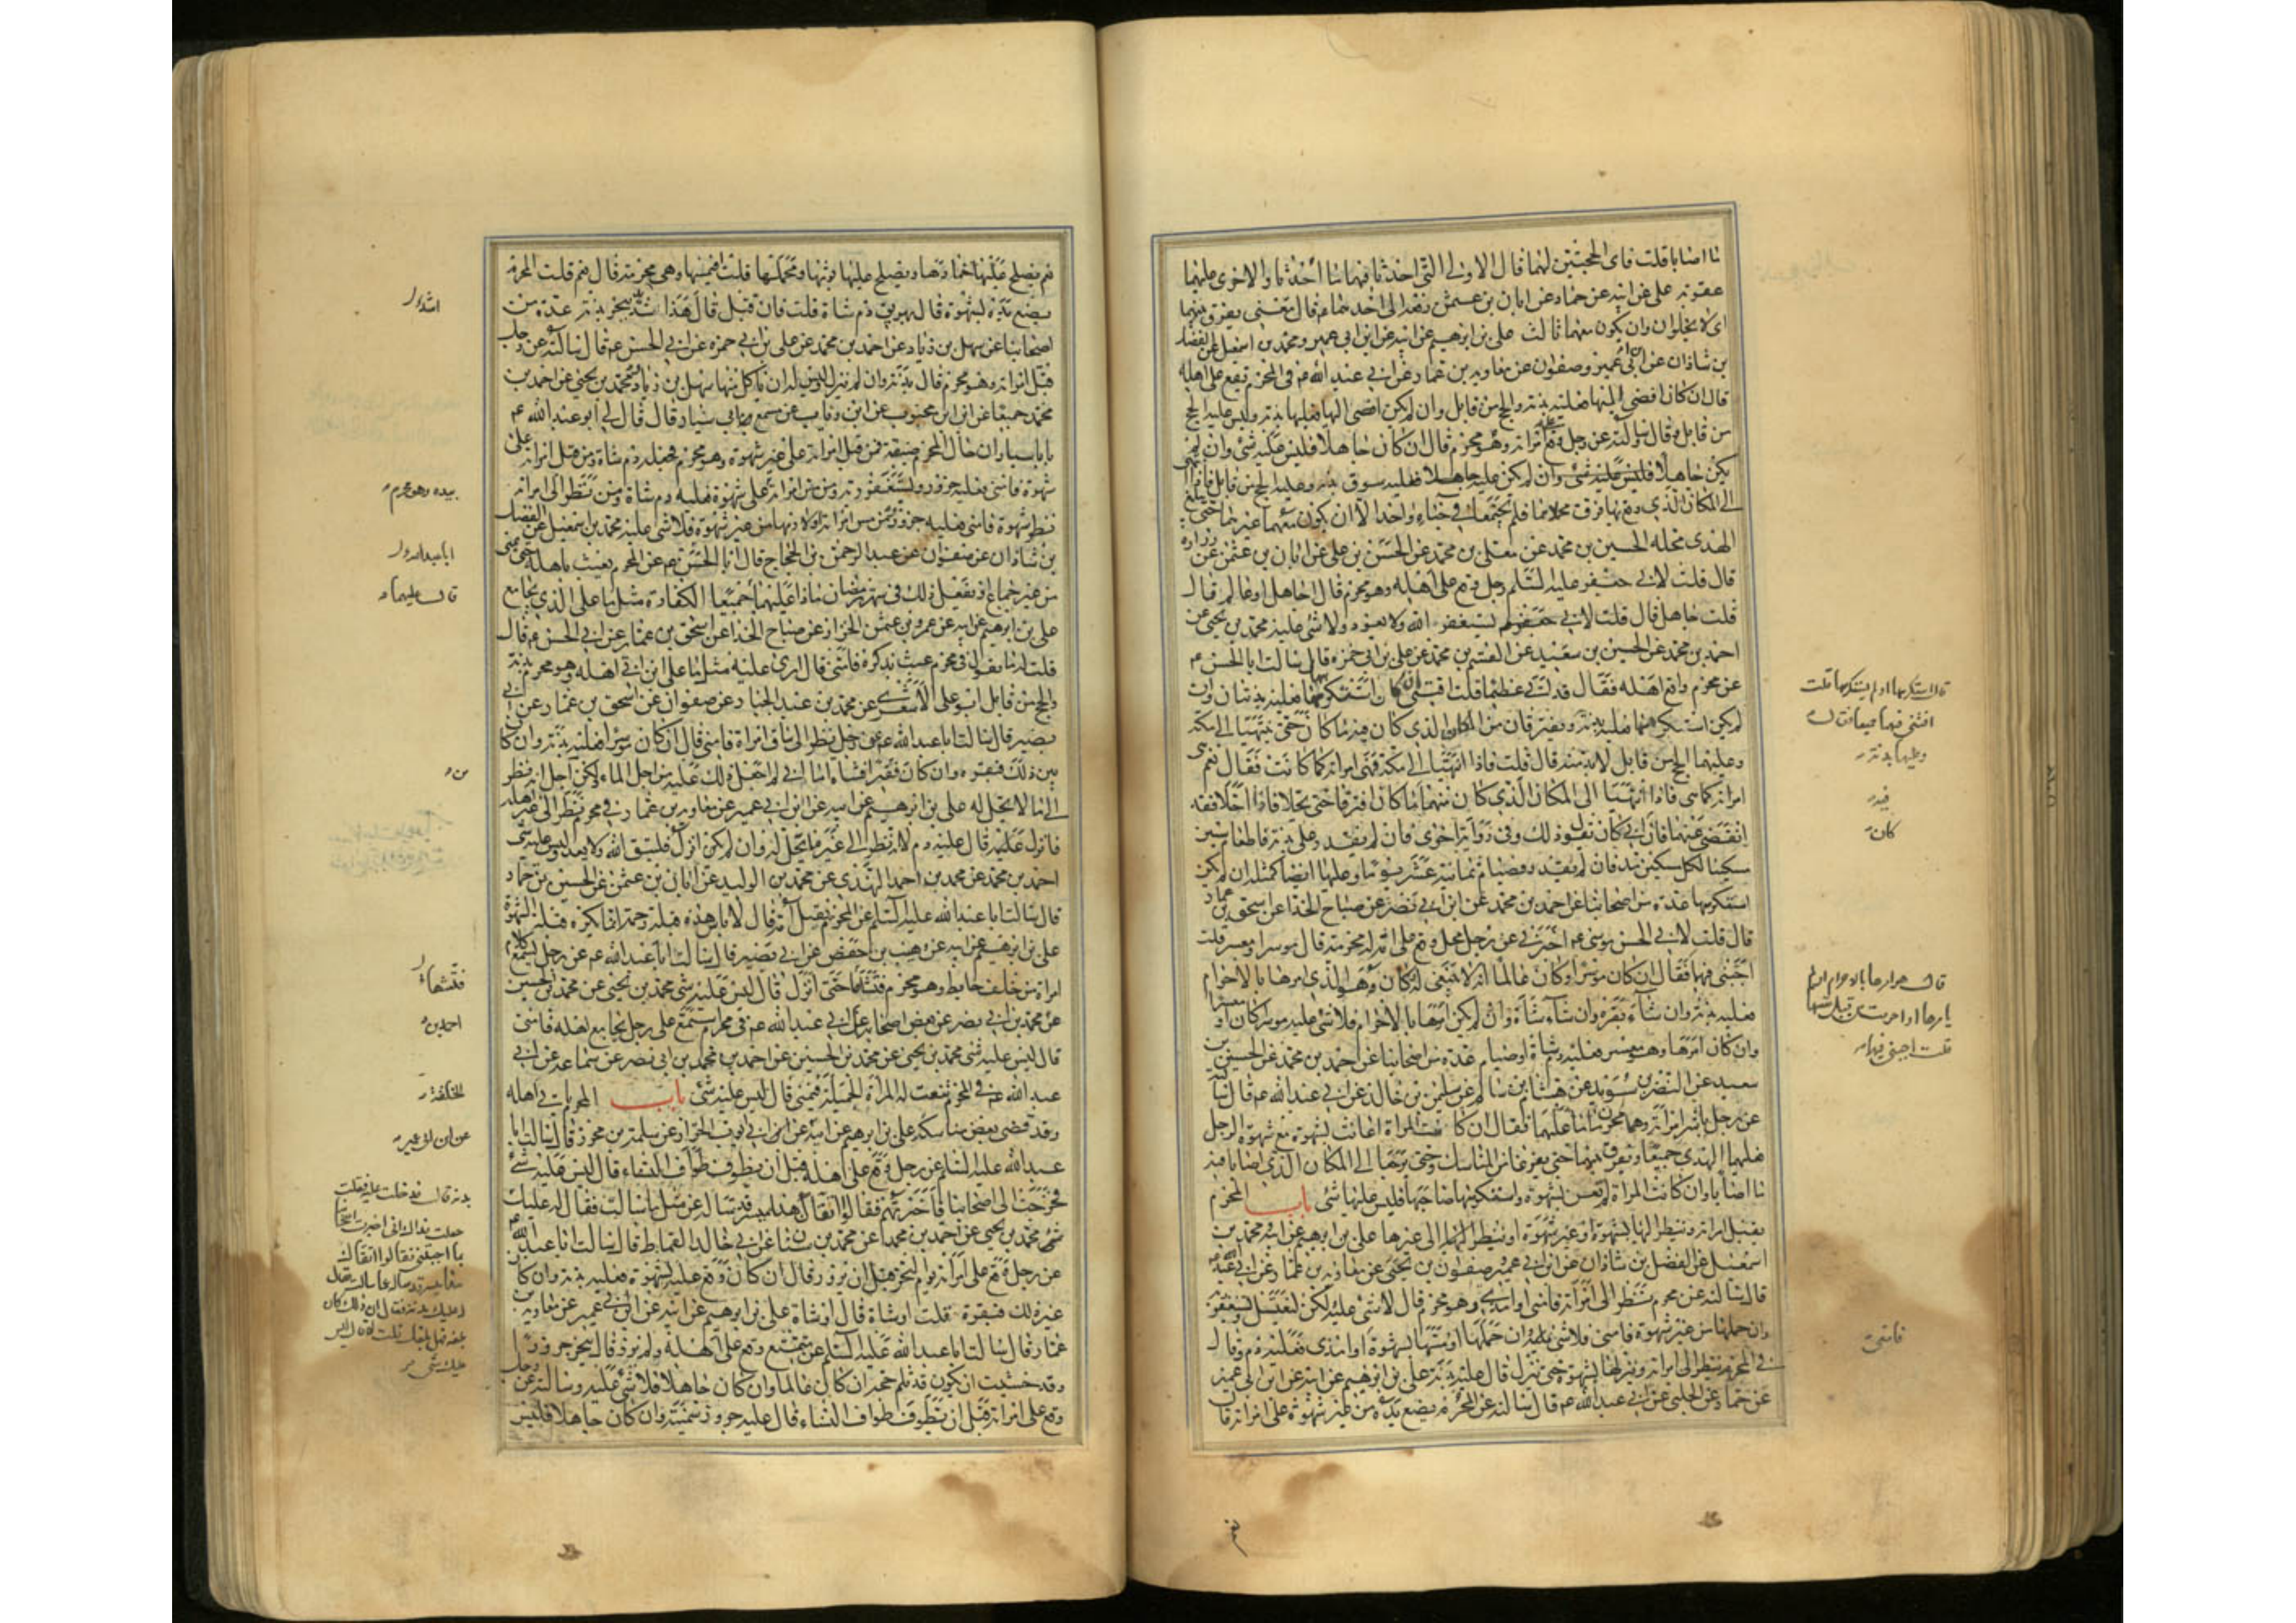 ما اصابا قلت فاى الحجتين لهما قال الاولى التى احدثا فيها ما أحدثا والاخرى عليهما
عقوبة على عن ابيه عن حماد عن ابان بن عثمن رفعه الى احدهما عم قال معنى يفرق بينهما
اى لا يخلوان وان يكون معهما ثالث على بن ابرهيم عن ابيه عن ابن ابى عمير ومحمد بن اسمعيل عن الفضل
بن شاذان عن ابن ابى عمير وصفوان عن معاوية بن عمار عن ابى عبد الله عم فى المحرم يقع على اهله
قال ان كان افضى اليها فعليه بدنة والحج من قابل وان لم يكن افضى اليها فعليه بدنة وليس عليه الحج
من قابل وقال سالته عن رجل وقع على امراته وهو محرم قال ان كان جاهلا فليس عليه شئ وان لم
يكن جاهلا فعليه سوق بدنة وعليه الحج من قابل فاذا انتهى
الى المكان الذى وقع بها فرق محملاهما فلم يجتمعا فى خباء واحد الا ان يكون معهما غيرهما حتى يبلغ
الهدى محله الحسين بن محمد عن معلى بن محمد عن الحسن بن على عن ابان بن عثمن عن زرارة
قال قلت لابى جعفر عليه السلام رجل وقع على اهله وهو محرم قال اجاهل او عالم قال
قلت جاهل قال يستغفر الله ولا يعود ولا شئ عليه محمد بن يحيى عن
احمد بن محمد عن الحسين بن سعيد عن القسم بن محمد عن على بن ابى حمزة قال سالت ابا الحسن عم
عن محرم واقع اهله فقال قد اتى عظيما قلت افتنى كان استكرهها فعليه بدنتان وان
لم يكن استكرهها فعليه بدنة ويفترقان من المكان الذى كان فيه ما كان حتى ينتهيا الى مكة
وعليهما الحج من قابل لا بد منه قال قلت فاذا انتهيا الى مكة فهى امراته كما كانت فقال نعم هى
امراته كما هى فاذا انتهيا الى المكان الذى كان منهما ما كان افترقا حتى يحلا فاذا احلا فقد
انقضى عنهما فان ابى كان يقول ذلك وفى رواية اخرى فان لم يقدر على بدنة فاطعام ستين
مسكينا لكل مسكين مد فان لم يقدر فصيام ثمانية عشر يوما وعليها ايضا كمثله ان لم يكن
استكرهها عدة من اصحابنا عن احمد بن محمد عن ابن ابى نصر عن صباح الحذا عن اسحق بن عمار
قال قلت لابى الحسن موسى عم اخبرنى عن رجل محل وقع على امة له محرمة قال موسرا او معسر قلت
اجبنى فيها فقال ان كان موسرا وكان عالما انه لا ينبغى له وكان هو الذى امرها بالاحرام
فعليه بدنة وان شاء بقرة وان شاء شاة وان لم يكن امرها بالاحرام فلا شئ عليه موسرا كان او معسرا
وان كان امرها وهو معسر فعليه دم شاة او صيام عدة من اصحابنا عن احمد بن محمد عن الحسين بن
سعيد عن النضر بن سويد عن هشام بن سالم عن سليمن بن خالد عن ابى عبد الله عم قال سالته
عن رجل باشر امراته وهما محرمان ما عليهما فقال ان كانت المراة اعانت بشهوة مع شهوة الرجل
فعليهما الهدى جميعا ويفرق بينهما حتى يفرغا من المناسك وحتى يرجعا الى المكان الذى اصابا فيه
ما اصابا وان كانت المراة لم تعن بشهوة واستكرهها صاحبها فليس عليها شئ باب المحرم
يقبل امراته وينظر اليها بشهوة او غير شهوة او ينظر الى غيرها على بن ابرهيم عن ابيه ومحمد بن
اسمعيل عن الفضل بن شاذان عن ابن ابى عمير وصفوان بن يحيى عن معاوية بن عمار عن ابى عبد الله عم
قال سالته عن محرم نظر الى امراته فامنى او امذى وهو محرم قال لا شئ عليه ولكن ليغتسل ويستغفر
وان حملها من غير شهوة فامنى فلا شئ عليه وان حملها او مسها بشهوة او امذى فعليه دم وقال
فى المحرم ينظر الى امراته وينزلها بشهوة حتى ينزل قال عليه بدنة على بن ابرهيم عن ابيه عن ابن ابى عمير
عن حماد عن الحلبى عن ابى عبد الله عم قال سالته عن المحرم يضع يده من غير شهوة على امراته قال
قال استكرهها او لم يستكرهها قلت
افتنى فيهما جميعا فقال
وعليها بدنة
فيه
كان
قال هو امرها بالاحرام او لم
يامرها او احرمت من قبل نفسها
قلت اجبنى فيهما
فامنى
نعم
نعم يصلح عليها خمارها ويصلح عليها ثوبها ومحملها قلت افيمسها وهى محرمة قال نعم قلت المحرم
يضع يده بشهوة قال يهريق دم شاة قلت فان قبل قال هذا اشد ينحر بدنة عدة من
اصحابنا عن سهل بن زياد عن احمد بن محمد عن على بن ابى حمزة عن ابى الحسن عم قال سالته عن رجل
قبل امراته وهو محرم قال بدنة وان لم ينزل وليس له ان ياكل منها سهل بن زياد ومحمد بن يحيى عن احمد بن
محمد جميعا عن ابن محبوب عن ابن رئاب عن مسمع ابى سيار قال قال لى ابو عبد الله عم
يا با سيار ان حال المحرم ضيقة فمن قبل امراته على غير شهوة وهو محرم فعليه دم شاة ومن قبل امراته على
شهوة فامنى فعليه جزور ويستغفر ربه ومن مس امراته على شهوة فعليه دم شاة ومن نظر الى امراته
نظر شهوة فامنى فعليه جزور ومن مس امراته او لازمها من غير شهوة فلا شئ عليه محمد بن اسمعيل عن الفضل
بن شاذان عن صفوان عن عبد الرحمن بن الحجاج قال سالت ابا الحسن عم عن المحرم يعبث باهله حتى يمنى
من غير جماع او يفعل ذلك فى شهر رمضان ماذا عليهما جميعا الكفارة مثل ما على الذى يجامع
على بن ابرهيم عن ابيه عن عمرو بن عثمن الخزاز عن صباح الحذا عن اسحق بن عمار عن ابى الحسن عم قال
قلت له ما تقول فى محرم عبث بذكره فامنى قال ارى عليه مثل ما على من اتى اهله وهو محرم بدنة
والحج من قابل ابو على الاشعرى عن محمد بن عبد الجبار عن صفوان عن اسحق بن عمار عن ابى
بصير قال سالت ابا عبد الله عم عن رجل نظر الى ساق امراة فامنى قال ان كان موسرا فعليه بدنة وان كان
بين ذلك فبقرة وان كان فقيرا فشاة اما انى لم اجعل ذلك عليه من اجل الماء ولكن من اجل انه نظر
الى ما لا يحل له على بن ابرهيم عن ابيه عن ابن ابى عمير عن معاوية بن عمار فى محرم نظر الى غير اهله
فانزل عليه قال عليه دم لانه نظر الى غير ما يحل له وان لم يكن انزل فليتق الله ولا يعد وليس عليه شئ
احمد بن محمد عن محمد بن احمد النهدى عن محمد بن الوليد عن ابان بن عثمن عن الحسين بن حماد
قال سالت ابا عبد الله عليه السلام عن المحرم يقبل امه قال لا باس هذه قبلة رحمة انما يكره قبلة الشهوة
على بن ابرهيم عن ابيه عن وهيب بن حفص عن ابى بصير قال سالت ابا عبد الله عم عن رجل يسمع كلام
امراة من خلف حايط وهو محرم فتشاهى حتى انزل قال ليس عليه شئ محمد بن يحيى عن محمد بن الحسين
عن محمد بن ابى نصر عن بعض اصحابنا عن ابى عبد الله عم فى محرم استمع على رجل يجامع اهله فامنى
قال ليس عليه شئ محمد بن يحيى عن محمد بن الحسين عن احمد بن محمد بن ابى نصر عن سماعة عن ابى
عبد الله عم فى المحرم تنعت له المراة الجميلة فيمنى قال ليس عليه شئ باب المحرم ياتى اهله
وقد قضى بعض مناسكه على بن ابرهيم عن ابيه عن ابى ايوب الخزاز عن سلمة بن محرز قال سالت ابا
عبد الله عليه السلام عن رجل وقع على اهله قبل ان يطوف طواف النساء قال ليس عليه شئ
فخرجت الى اصحابنا فاخبرتهم فقالوا اتقاك هذا ميسر قد ساله عن مثل ما سالت فقال له عليك
شئ محمد بن يحيى عن احمد بن محمد عن محمد بن سنان عن ابى خالد القماط قال سالت ابا عبد الله عم
عن رجل وقع على امراته يوم النحر قبل ان يزور قال ان كان وقع عليه بشهوة فعليه بدنة وان كان
غير ذلك فبقرة قلت او شاة قال او شاة على بن ابرهيم عن ابيه عن ابن ابى عمير عن معاوية بن
عمار قال سالت ابا عبد الله عليه السلام عن متمتع وقع على اهله ولم يزر قال ينحر جزورا
وقد خشيت ان يكون قد ثلم حجه ان كان عالما وان كان جاهلا فلا شئ عليه وسالته عن رجل
وقع على امراته قبل ان يطوف طواف النساء قال عليه جزور سمينة وان كان جاهلا فليس
اشد
بيده وهو محرم
ابا عبد الله
قال عليهما
من
فتشها
احمد بن
الخلقة
عن ابن ابى عمير
بدنة قال فدخلت عليه فقلت
جعلت فداك انى اخبرت اصحابنا
بما اجبتنى فقالوا اتقاك
هذا ميسر قد ساله عما سالت فقال
له عليك بدنة فقال ان ذلك كان
بلغه فهل بلغك قلت لا قال ليس
عليك شئ